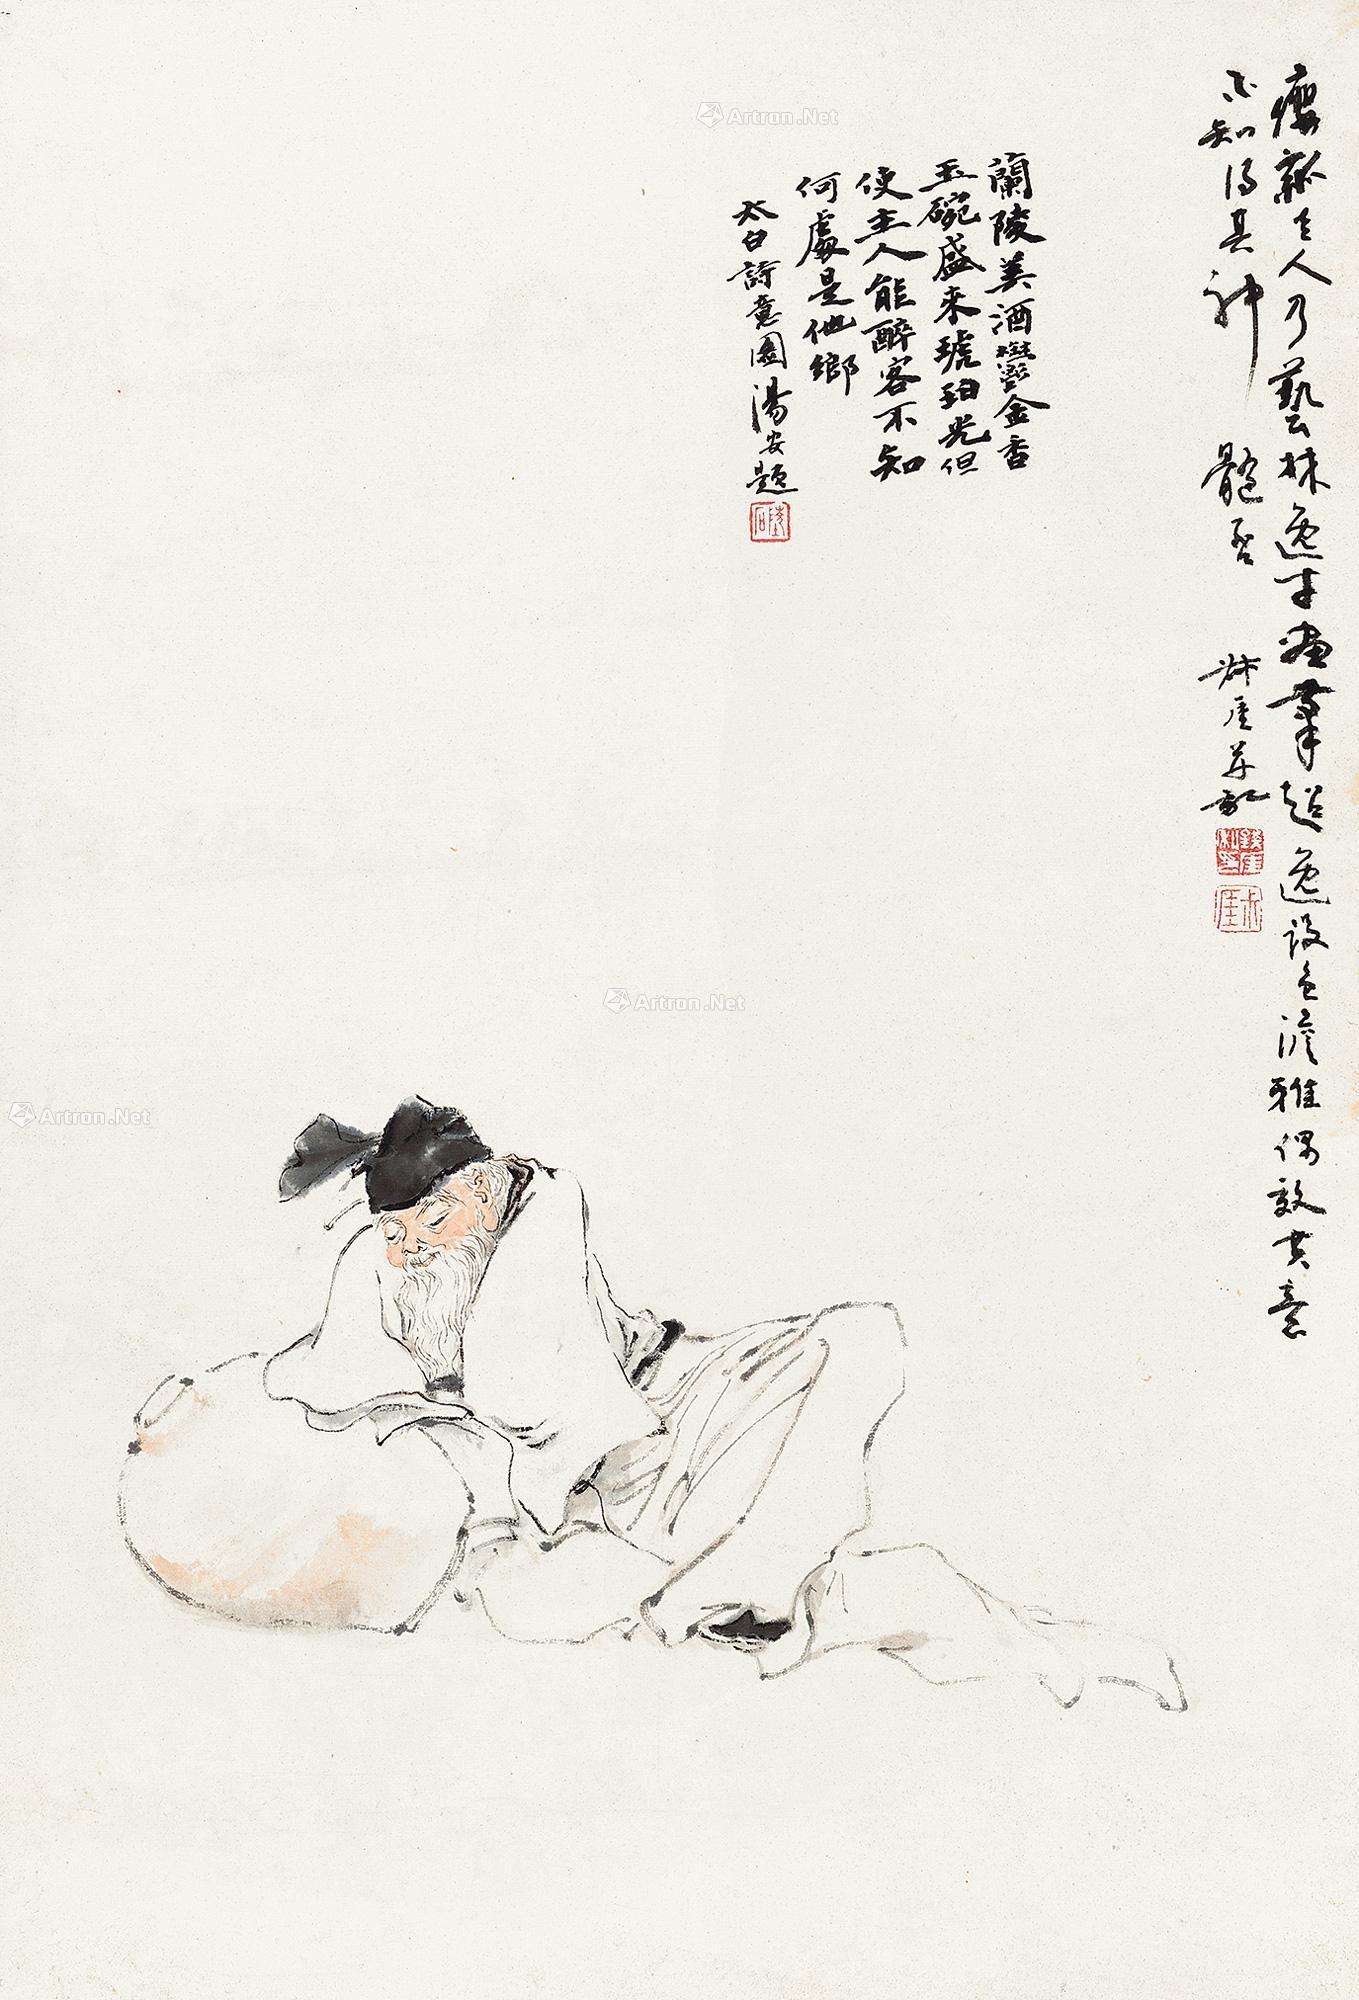 癭瓢老人乃藝林逸才畫筆超逸設色澹雅偶效其意
不知得其神髓否 叔厓並記
叔厓
蘭陵美酒鬱金香
玉碗盛來琥珀光但
使主人能醉客不知
何處是他鄉
太白詩意圖湯安題
Artron.Net
Artron.Net
Artron.Net